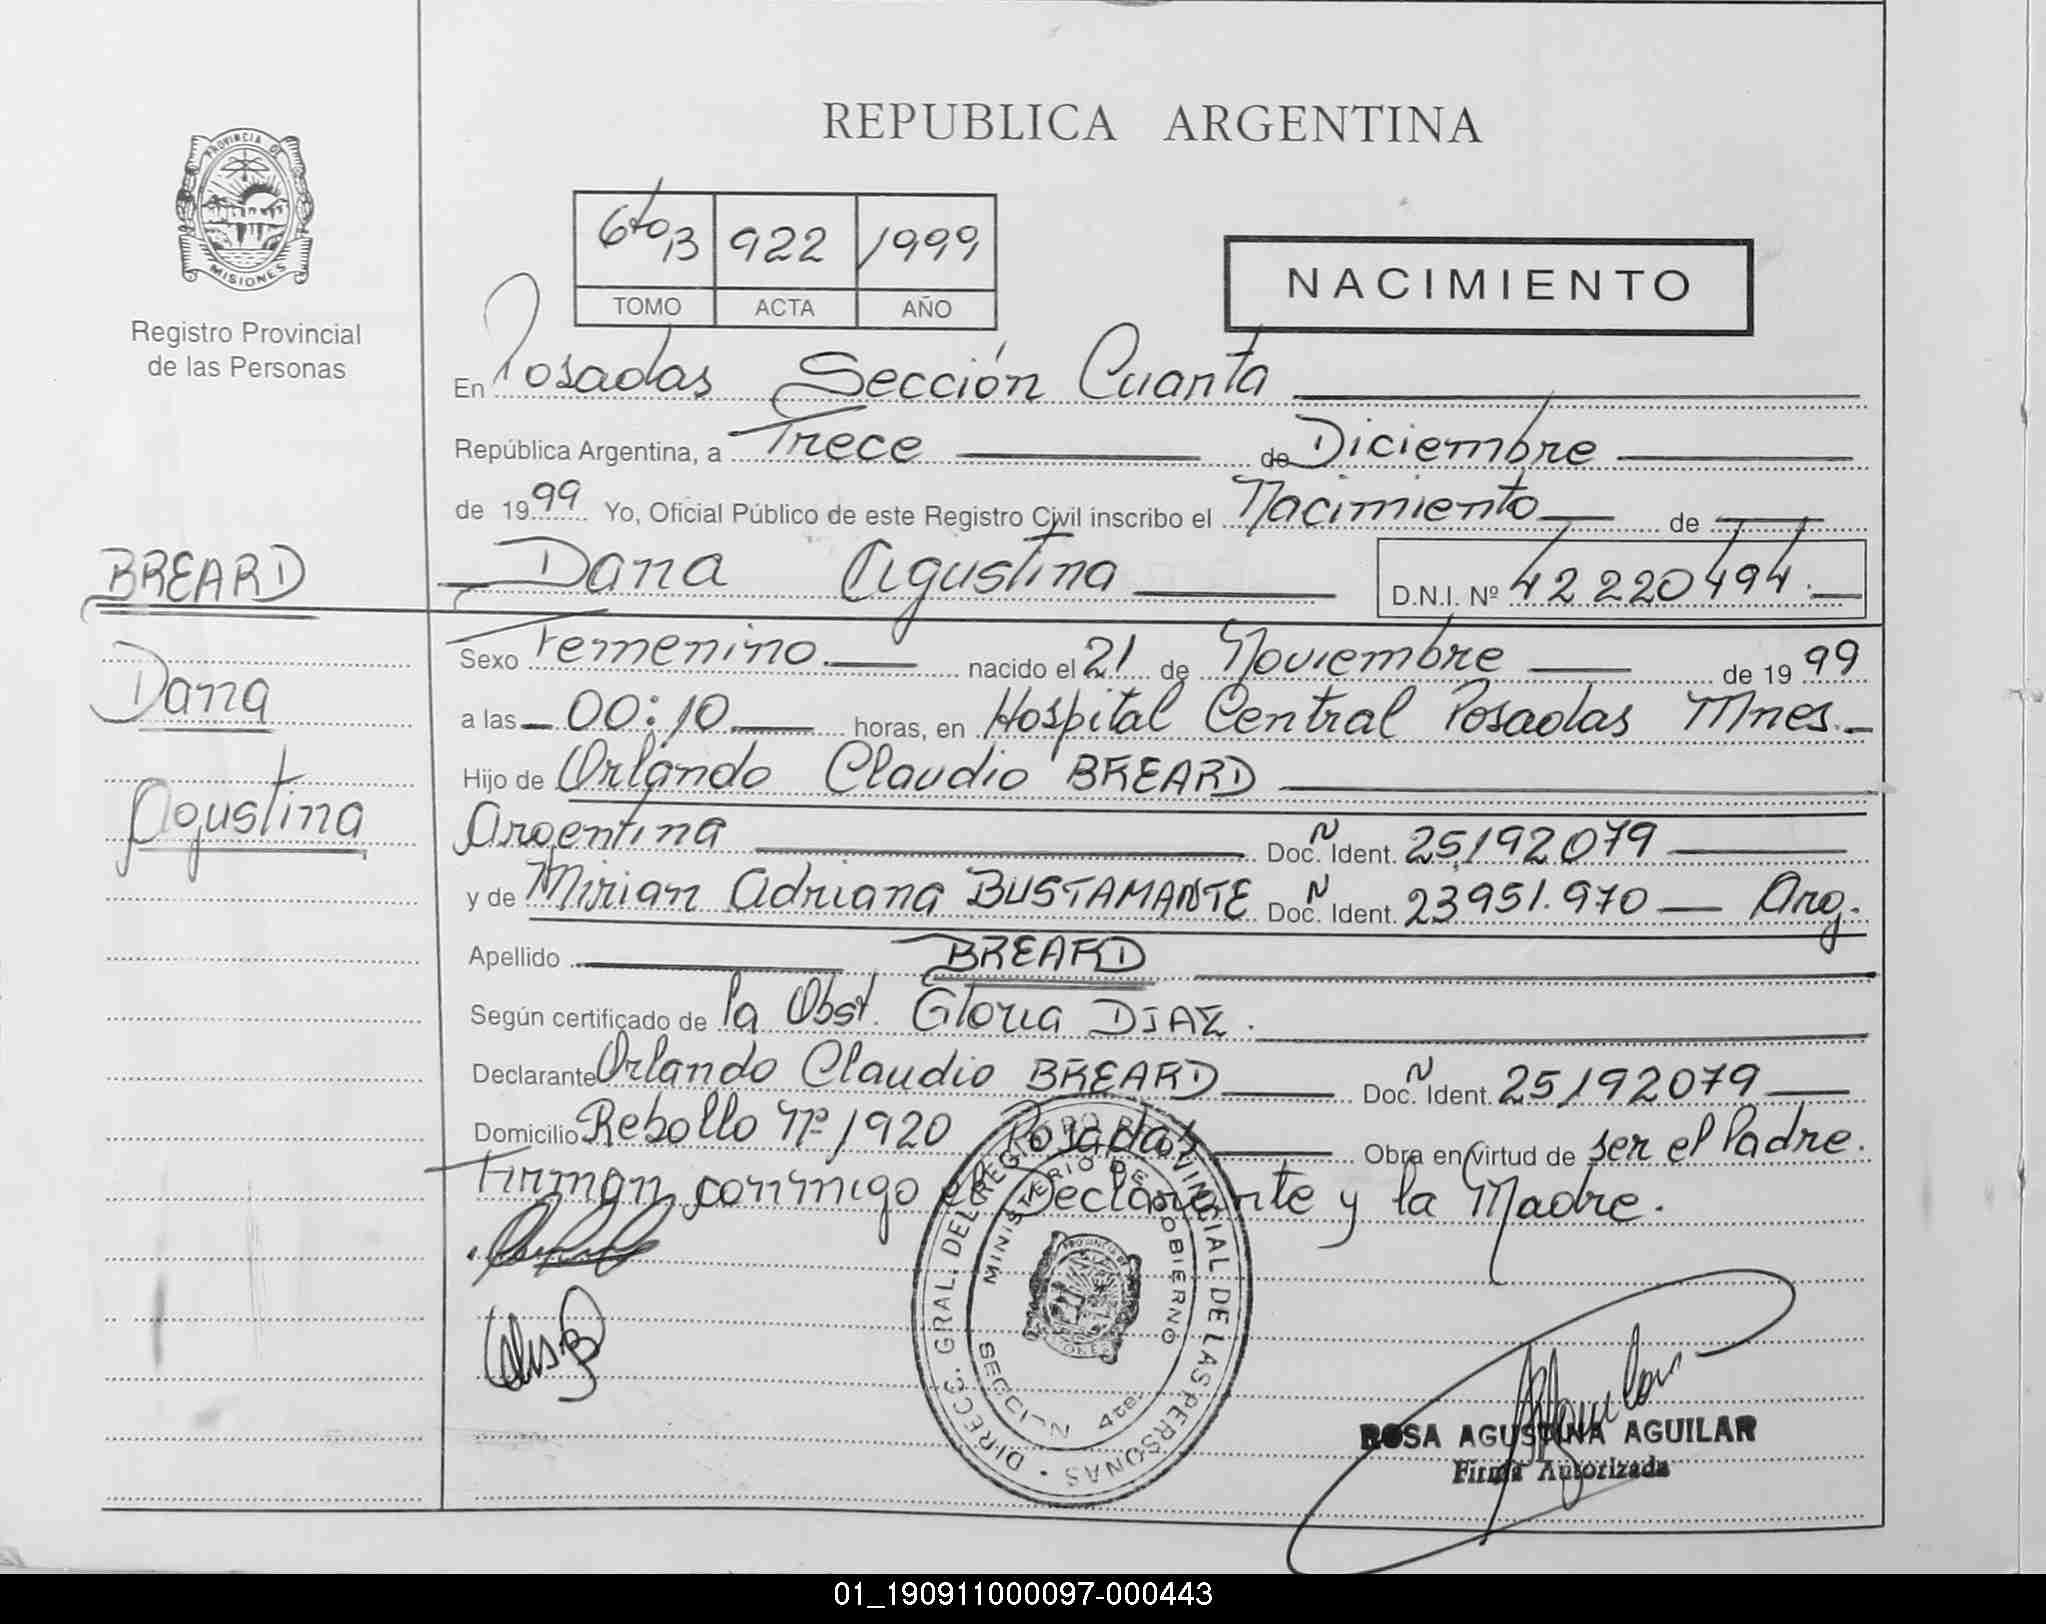 REPUBLICA ARGENTINA
PROVINCIA DE
MISIONES
Registro Provincial
de las Personas
6to B 922 1999
TOMO ACTA AÑO
NACIMIENTO
En Posadas Sección Cuarta
República Argentina, a Trece de Diciembre
de 1999 Yo, Oficial Público de este Registro Civil inscribo el Nacimiento de
BREARD
Dana Agustina D.N.I. Nº 42220494.
Dana
Agustina
Sexo Femenino. nacido el 21 de Noviembre de 1999
a las 00:10 horas, en Hospital Central Posadas Mnes.
Hijo de Orlando Claudio BREARD
Argentina Doc. Ident. 25192079
y de Mirian Adriana BUSTAMANTE Doc. Ident. 23951.970 Arg.
Apellido BREARD
Según certificado de la Obst. Gloria DIAZ.
Declarante Orlando Claudio BREARD Doc. Ident. 25192079
Domicilio Rebollo Nº 1920 Posadas Obra en virtud de ser el Padre.
Firman conmigo el Declarante y la Madre.
DIRECC. GRAL. DEL REGISTRO PROVINCIAL DE LAS PERSONAS
MINISTERIO DE GOBIERNO
SECCION 4ta.
ROSA AGUSTINA AGUILAR
Firma Autorizada
01_190911000097-000443